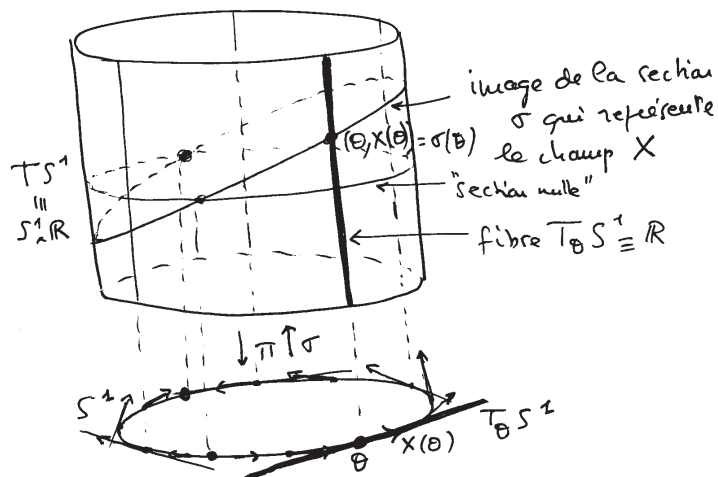 image de la section
σ qui représente
le champ X
(θ, X(θ)) = σ(θ)
"section nulle"
TS¹
≡
S¹×ℝ
fibre T_θ S¹ ≡ ℝ
↓ π ↑ σ
S¹
T_θ S¹
X(θ)
θ